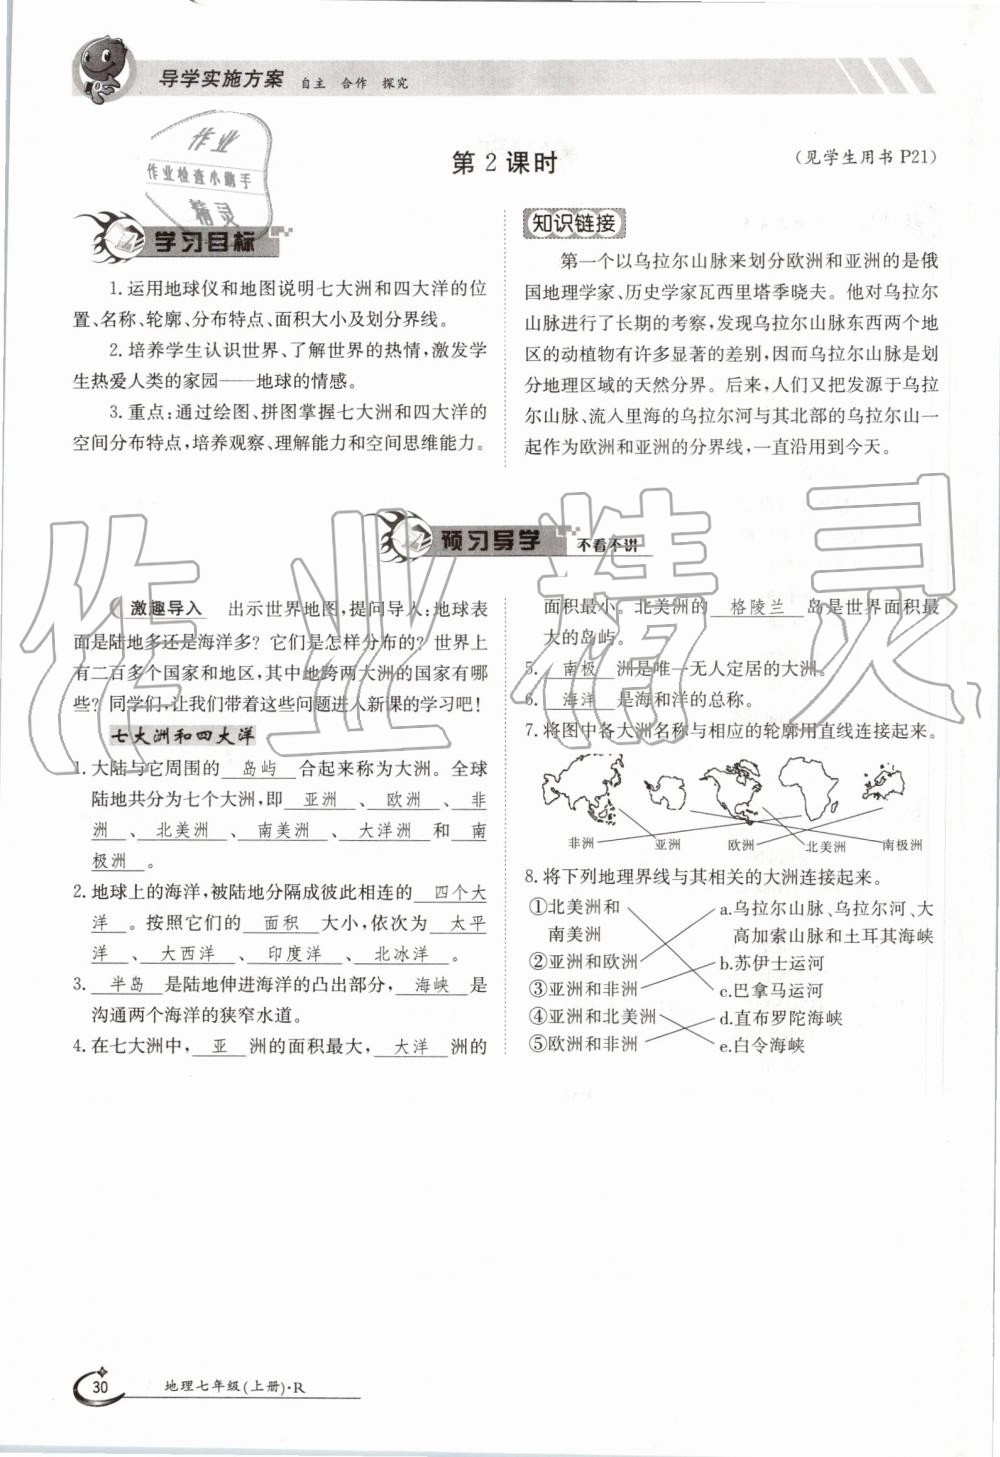 导学实施方案 自主 合作 探究
第2课时
(见学生用书 P21)
作业
作业检查小助手
精灵
学习目标
1.运用地球仪和地图说明七大洲和四大洋的位
置、名称、轮廓、分布特点、面积大小及划分界线。
2.培养学生认识世界、了解世界的热情,激发学
生热爱人类的家园——地球的情感。
3.重点:通过绘图、拼图掌握七大洲和四大洋的
空间分布特点,培养观察、理解能力和空间思维能力。
知识链接
第一个以乌拉尔山脉来划分欧洲和亚洲的是俄
国地理学家、历史学家瓦西里塔季晓夫。他对乌拉尔
山脉进行了长期的考察,发现乌拉尔山脉东西两个地
区的动植物有许多显著的差别,因而乌拉尔山脉是划
分地理区域的天然分界。后来,人们又把发源于乌拉
尔山脉、流入里海的乌拉尔河与其北部的乌拉尔山一
起作为欧洲和亚洲的分界线,一直沿用到今天。
作业精灵
预习导学 不看不讲
激趣导入 出示世界地图,提问导入:地球表
面是陆地多还是海洋多?它们是怎样分布的?世界上
有二百多个国家和地区,其中地跨两大洲的国家有哪
些?同学们,让我们带着这些问题进入新课的学习吧!
七大洲和四大洋
1.大陆与它周围的 岛屿 合起来称为大洲。全球
陆地共分为七个大洲,即 亚洲 、 欧洲 、 非
洲 、 北美洲 、 南美洲 、 大洋洲 和 南
极洲 。
2.地球上的海洋,被陆地分隔成彼此相连的 四个大
洋 。按照它们的 面积 大小,依次为 太平
洋 、 大西洋 、 印度洋 、 北冰洋 。
3. 半岛 是陆地伸进海洋的凸出部分, 海峡 是
沟通两个海洋的狭窄水道。
4.在七大洲中, 亚 洲的面积最大, 大洋 洲的
面积最小。北美洲的 格陵兰 岛是世界面积最
大的岛屿。
5. 南极 洲是唯一无人定居的大洲。
6. 海洋 是海和洋的总称。
7.将图中各大洲名称与相应的轮廓用直线连接起来。
非洲 亚洲 欧洲 北美洲 南极洲
8.将下列地理界线与其相关的大洲连接起来。
①北美洲和 a.乌拉尔山脉、乌拉尔河、大
南美洲 高加索山脉和土耳其海峡
②亚洲和欧洲 b.苏伊士运河
③亚洲和非洲 c.巴拿马运河
④亚洲和北美洲 d.直布罗陀海峡
⑤欧洲和非洲 e.白令海峡
30 地理七年级(上册)·R